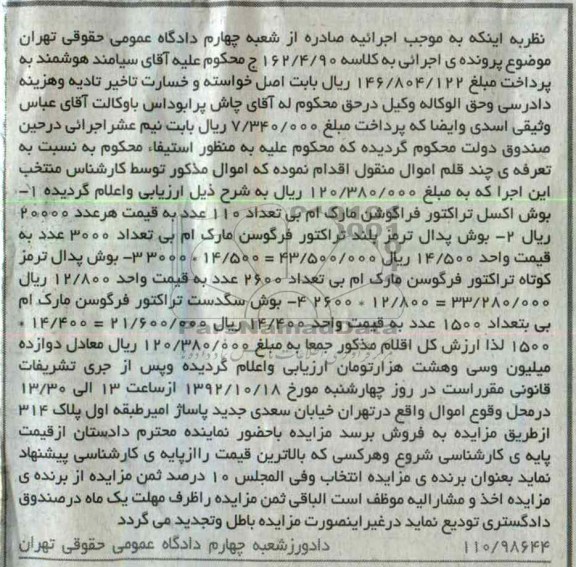 نظربه اینکه به موجب اجرائیه صادره از شعبه چهارم دادگاه عمومی حقوقی تهران
موضوع پرونده ی اجرائی به کلاسه ۱۶۲/۴/۹۰ ج محکوم علیه آقای سیامند هوشمند به
پرداخت مبلغ ۱۴۶/۸۰۴/۱۲۲ ریال بابت اصل خواسته و خسارت تاخیر تادیه وهزینه
دادرسی وحق الوکاله وکیل درحق محکوم له آقای چاش پرابوداس باوکالت آقای عباس
وثیقی اسدی وایضا که پرداخت مبلغ ۷/۳۴۰/۰۰۰ ریال بابت نیم عشراجرائی درحین
صندوق دولت محکوم گردیده که محکوم علیه به منظور استیفاء محکوم به نسبت به
تعرفه ی چند قلم اموال منقول اقدام نموده که اموال مذکور توسط کارشناس منتخب
این اجرا که به مبلغ ۱۲۰/۳۸۰/۰۰۰ ریال به شرح ذیل ارزیابی واعلام گردیده ۱-
بوش اکسل تراکتور فراگوشن مارک ام بی تعداد ۱۱۰ عدد به قیمت هرعدد ۲۰۰۰۰
ریال ۲- بوش پدال ترمز بلند تراکتور فرگوسن مارک ام بی تعداد ۳۰۰۰ عدد به
قیمت واحد ۱۴/۵۰۰ ریال ۴۳/۵۰۰/۰۰۰ = ۱۴/۵۰۰ * ۳۰۰۰ ۳- بوش پدال ترمز
کوتاه تراکتور فرگوسن مارک ام بی تعداد ۲۶۰۰ عدد به قیمت واحد ۱۲/۸۰۰ ریال
۳۳/۲۸۰/۰۰۰ = ۱۲/۸۰۰ * ۲۶۰۰ ۴- بوش سگدست تراکتور فرگوسن مارک ام
بی بتعداد ۱۵۰۰ عدد به قیمت واحد ۱۴/۴۰۰ ریال ۲۱/۶۰۰/۰۰۰ = ۱۴/۴۰۰ *
۱۵۰۰ لذا ارزش کل اقلام مذکور جمعا به مبلغ ۱۲۰/۳۸۰/۰۰۰ ریال معادل دوازده
میلیون وسی وهشت هزارتومان ارزیابی واعلام گردیده وپس از جری تشریفات
قانونی مقرراست در روز چهارشنبه مورخ ۱۳۹۲/۱۰/۱۸ ازساعت ۱۳ الی ۱۳/۳۰
درمحل وقوع اموال واقع درتهران خیابان سعدی جدید پاساژ امیرطبقه اول پلاک ۳۱۴
ازطریق مزایده به فروش برسد مزایده باحضور نماینده محترم دادستان ازقیمت
پایه ی کارشناسی شروع وهرکسی که بالاترین قیمت راازپایه ی کارشناسی پیشنهاد
نماید بعنوان برنده ی مزایده انتخاب وفی المجلس ۱۰ درصد ثمن مزایده از برنده ی
مزایده اخذ و مشارالیه موظف است الباقی ثمن مزایده راظرف مهلت یک ماه درصندوق
دادگستری تودیع نماید درغیراینصورت مزایده باطل وتجدید می گردد
۱۱۰/۹۸۶۴۴ دادورزشعبه چهارم دادگاه عمومی حقوقی تهران